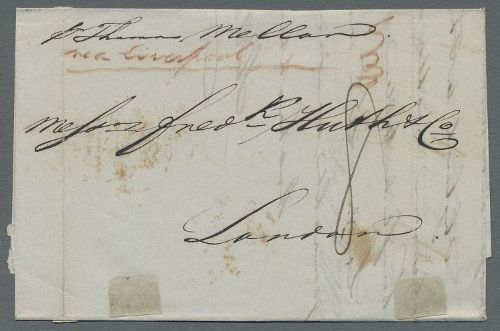 pr Thomas Mellon
via Liverpool
Messrs Fredk Huth & Co
8
London